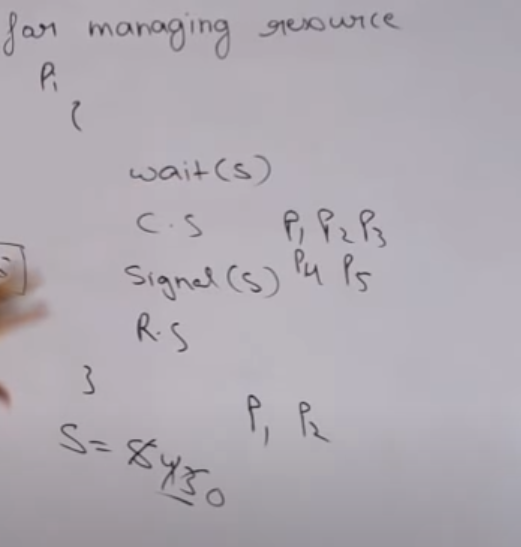 for managing resource
Pi
{
wait(s)
C.S P1 P2 P3
Signal(s) P4 P5
R.S
}
P1, P2
S= 5 4 3 0